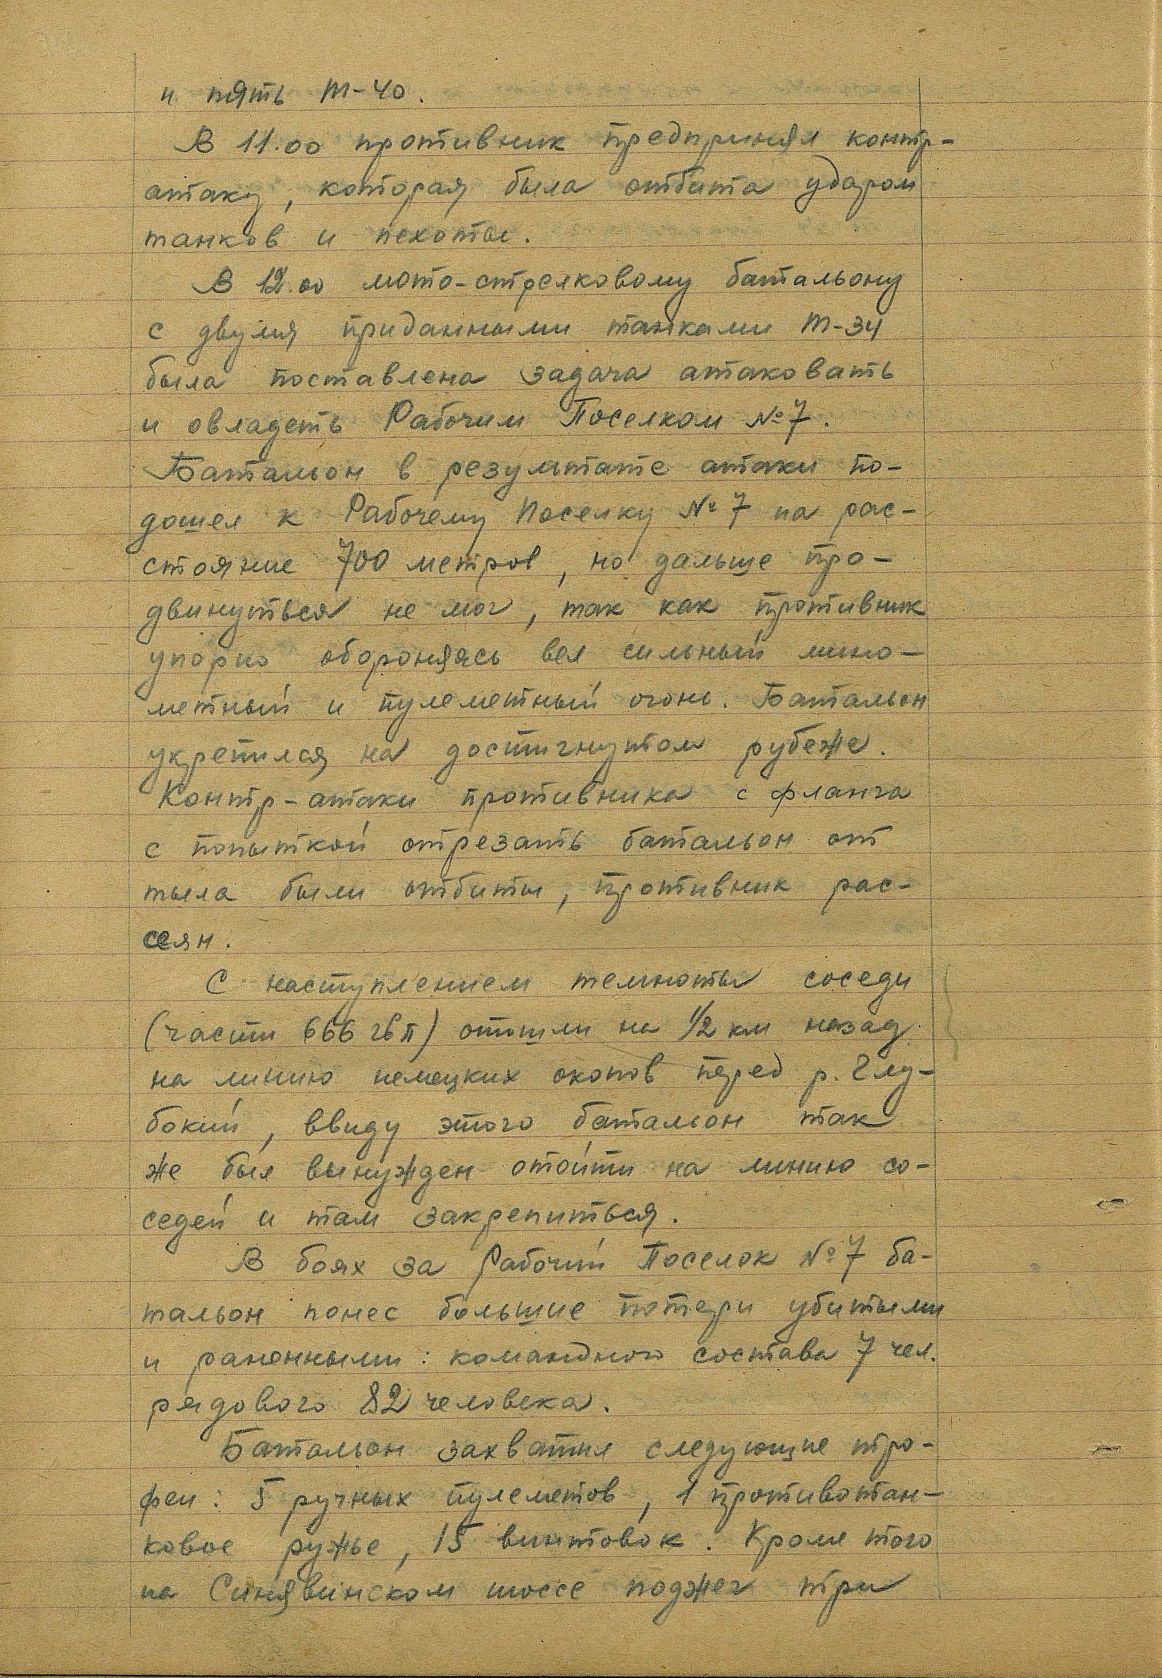 и пять Т-40.
В 11.00 противник предпринял контр-
атаку, которая была отбита ударом
танков и пехоты.
В 12.00 мото-стрелковому батальону
с двумя приданными танками Т-34
была поставлена задача атаковать
и овладеть Рабочим Поселком №7.
Батальон в результате атаки по-
дошел к Рабочему Поселку №7 на рас-
стояние 700 метров, но дальше про-
двинуться не мог, так как противник
упорно обороняясь вел сильный мино-
метный и пулеметный огонь. Батальон
укрепился на достигнутом рубеже.
Контр-атаки противника с фланга
с попыткой отрезать батальон от
тыла были отбиты, противник рас-
сеян.
С наступлением темноты соседи
(части 666 гвп) отошли на 1/2 км назад
на линию немецких окопов перед р. Глу-
бокий, ввиду этого батальон так
же был вынужден отойти на линию со-
седей и там закрепиться.
В боях за Рабочий Поселок №7 ба-
тальон понес большие потери убитыми
и ранеными: командного состава 7 чел.
рядового 82 человека.
Батальон захватил следующие тро-
феи: 5 ручных пулеметов, 1 противотан-
ковое ружье, 15 винтовок. Кроме того
на Синявинском шоссе поджег три